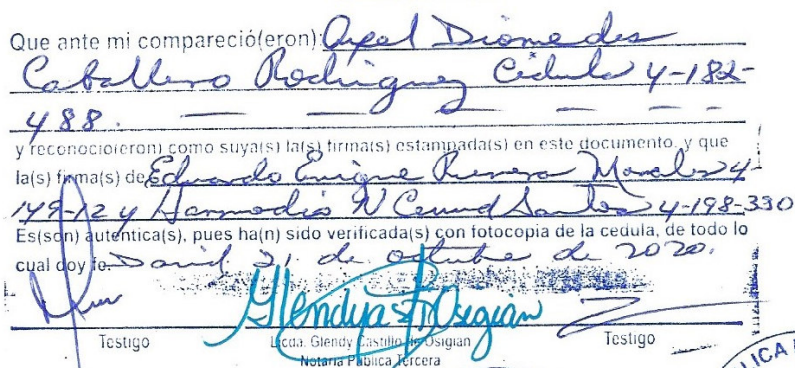 Que ante mi compareció(eron): Diomedes
Caballero Rodriguez Cédula 4-182-
488. — — — — —
y reconocio(eron) como suya(s) la(s) firma(s) estampada(s) en este documento, y que
la(s) firma(s) de Eduardo Enrique Morales 4-
149-12 y Hermodio N Santos 4-198-330
Es(son) autentica(s), pues ha(n) sido verificada(s) con fotocopia de la cedula, de todo lo
cual doy fe. David 21 de octubre de 2020.
Glendy de Osigian
Testigo Licda. Glendy Castillo de Osigian Testigo
Notaria Pública Tercera